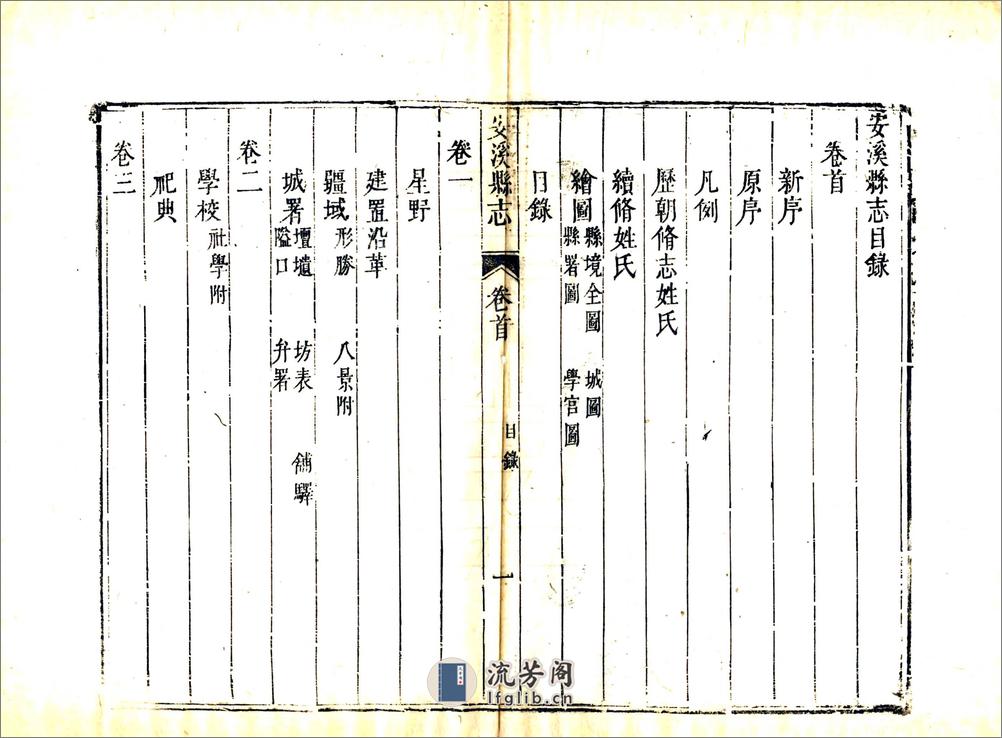 安溪縣志目錄
卷首
新序
原序
凡例
歷朝脩志姓氏
續脩姓氏
繪圖 縣境全圖 城圖
縣署圖 學宮圖
目錄
安溪縣志 卷首 目錄 一
卷一
星野
建置沿革
疆域 形勝 八景附
城署 壇壝 坊表 舖驛
隘口 弁署
卷二
學校 社學附
祀典
卷三
流芳阁
lfglib.cn